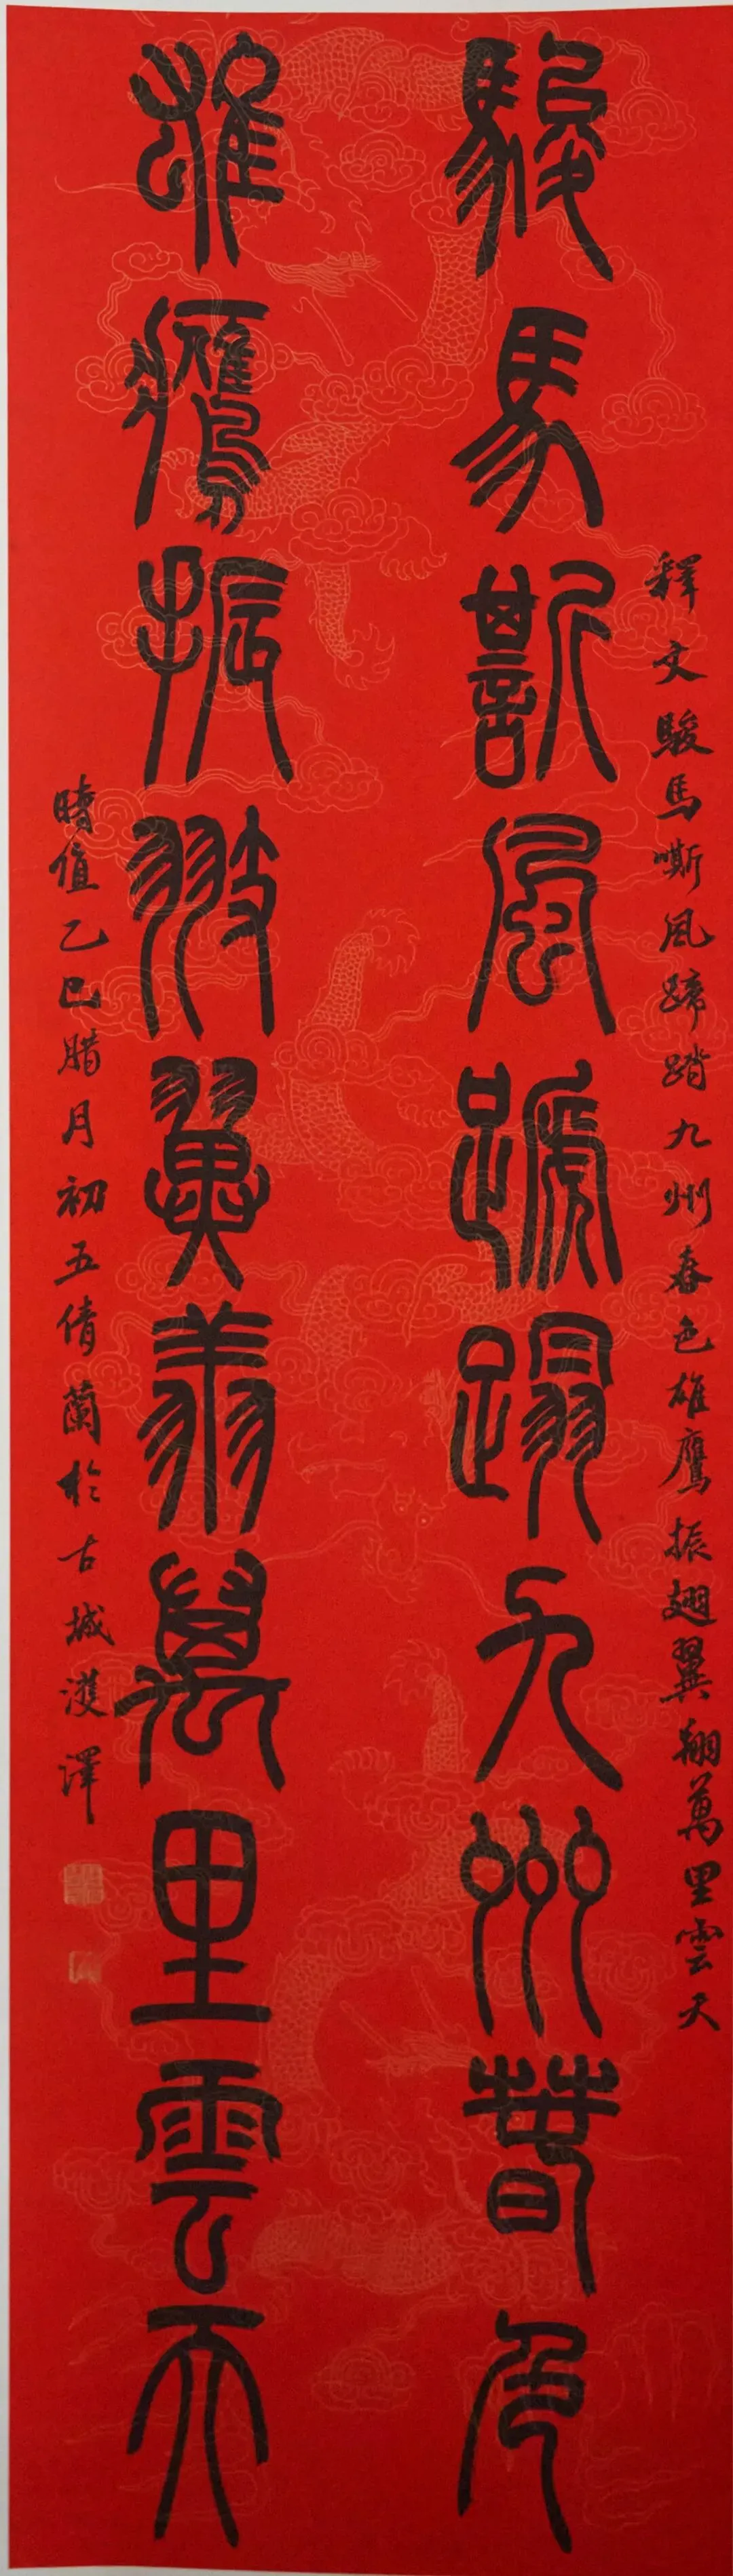 釋文駿馬嘶風蹄踏九州春色雄鷹振翅翼翔萬里雲天
駿馬嘶風蹏蹋九州春色
雄鷹振翅翼翔萬里雲天
時值乙巳腊月初五倩蘭於古城濩澤